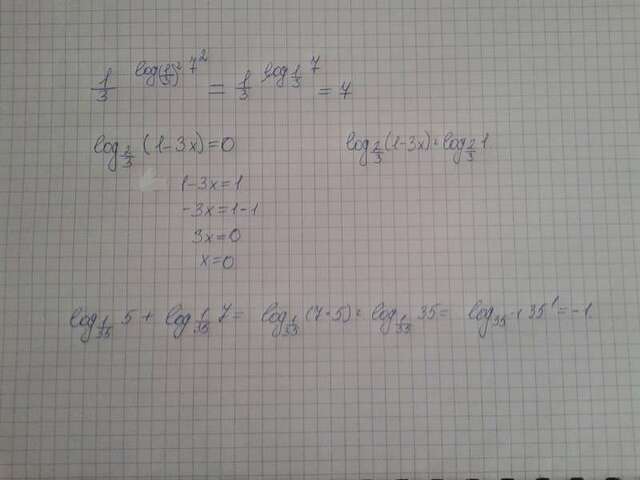 1/3^(log_(1/3)^2 7^2) = 1/3^(log_(1/3) 7) = 7
log_(2/3) (1-3x)=0 log_(2/3)(1-3x)=log_(2/3) 1.
1-3x=1
-3x=1-1
3x=0
x=0
log_(1/35) 5 + log_(1/35) 7 = log_(1/35) (7·5) = log_(1/35) 35 = log_(35^-1) 35^1 = -1.